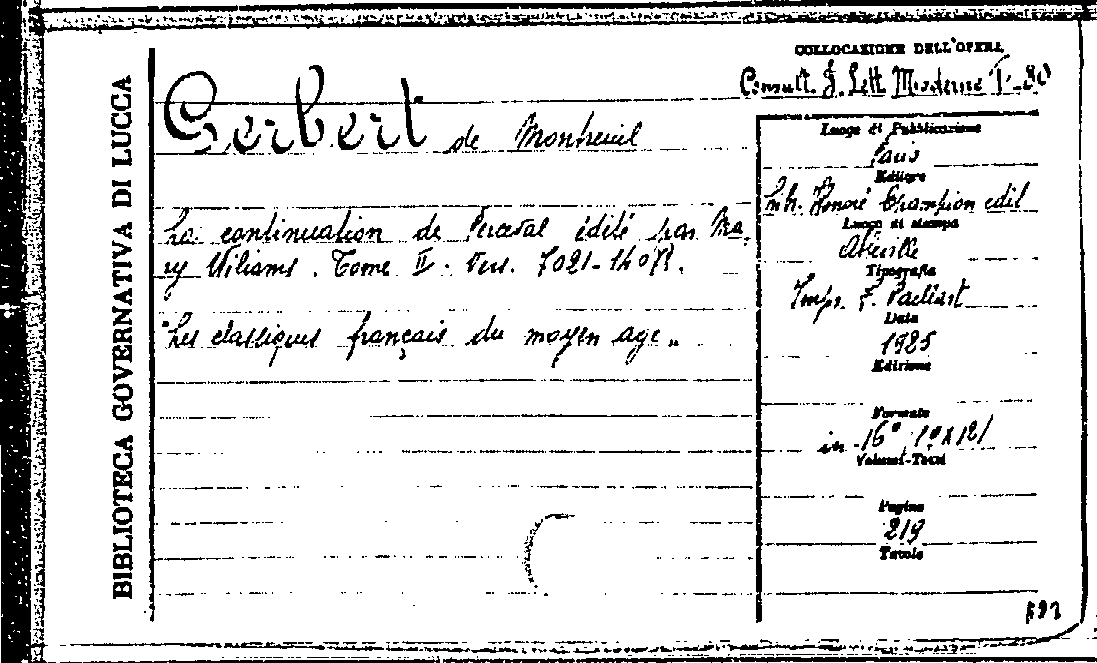 BIBLIOTECA GOVERNATIVA DI LUCCA
COLLOCAZIONE DELL'OPERA
Consult. F. Lett Moderne 80
Gerbert de Montreuil
La continuation de Perceval édité par Ma-
ry Wiliams. Tome II. Vers. 7021-14078.
"Les classiques français du moyen age„
Luogo di Pubblicazione
Paris
Editore
Honoré Champion edit
Luogo di stampa
Abbeville
Tipografia
Impr. F. Paillart
Data
1925
Edizione
Formato
in-16°
Volumi-Tomi
Pagine
219
Tavole